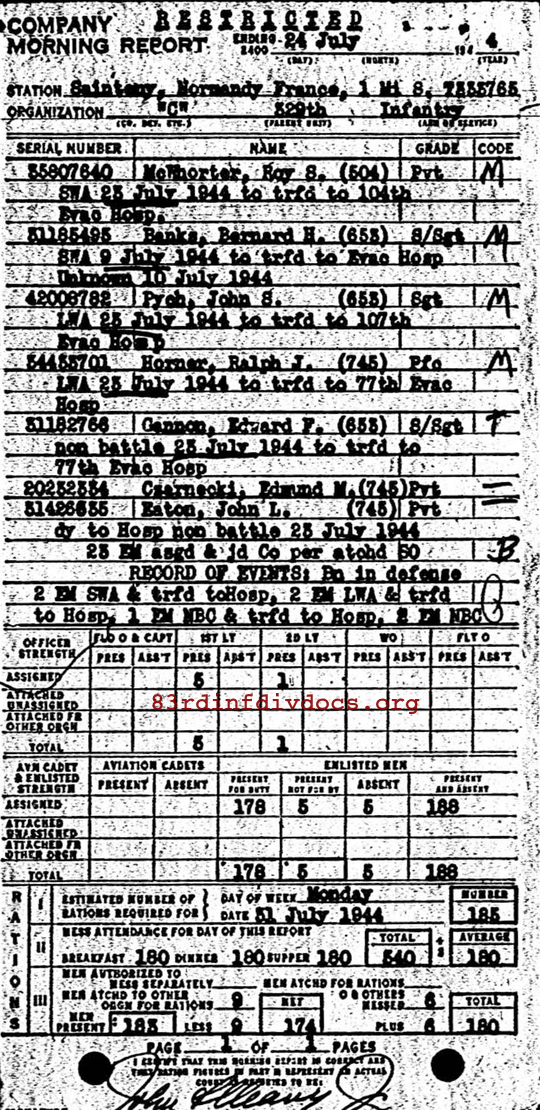 COMPANY RESTRICTED
MORNING REPORT ENDING 2400 24 July 194 4
(DAY) (MONTH) (YEAR)
STATION Sainteny, Normandy France, 1 Mi S.
ORGANIZATION "C" 329th Infantry
(CO. DET. ETC.) (PARENT UNIT) (ARM OR SERVICE)
SERIAL NUMBER NAME GRADE CODE
35807640 McWhorter, Roy S. (504) Pvt M
SWA 23 July 1944 to trfd to 104th
Evac Hosp.
31185495 Banks, Bernard H. (653) S/Sgt M
SWA 9 July 1944 to trfd to Evac Hosp
Unknown 10 July 1944
42008782 Pych, John S. (653) Sgt M
LWA 23 July 1944 to trfd to 107th
Evac Hosp
34435701 Horner, Ralph J. (745) Pfc M
LWA 23 July 1944 to trfd to 77th Evac
Hosp
31182766 Gannon, Edward F. (653) S/Sgt
non battle 23 July 1944 to trfd to
77th Evac Hosp
20232334 Czarnecki, Edmund M. (745) Pvt
31426635 Eaton, John L. (745) Pvt
dy to Hosp non battle 23 July 1944
23 EM asgd & jd Co per atchd SO B
RECORD OF EVENTS: Bn in defense
2 EM SWA & trfd toHosp, 2 EM LWA & trfd
to Hosp, 1 EM NBC & trfd to Hosp, 2 EM NBC
OFFICER STRENGTH FLD O & CAPT 1ST LT 2D LT WO FLT O
PRES ABS'T PRES ABS'T PRES ABS'T PRES ABS'T PRES ABS'T
ASSIGNED 5 1
ATTACHED UNASSIGNED
83rdinfdivdocs.org
ATTACHED FR OTHER ORGN
TOTAL 5 1
AVN CADET & ENLISTED STRENGTH AVIATION CADETS ENLISTED MEN
PRESENT ABSENT PRESENT FOR DUTY PRESENT NOT FOR DY ABSENT PRESENT AND ABSENT
ASSIGNED 178 5 5 188
ATTACHED UNASSIGNED
ATTACHED FR OTHER ORGN
TOTAL 178 5 5 188
RATIONS
I ESTIMATED NUMBER OF RATIONS REQUIRED FOR DAY OF WEEK Monday NUMBER
DATE 31 July 1944 185
II MESS ATTENDANCE FOR DAY OF THIS REPORT TOTAL ÷ 3 AVERAGE
BREAKFAST 180 DINNER 180 SUPPER 180 540 180
III MEN AUTHORIZED TO MESS SEPARATELY MEN ATCHD FOR RATIONS
MEN ATCHD TO OTHER ORGN FOR RATIONS 9 NET O & OTHERS MESSED 6 TOTAL
MEN PRESENT 183 LESS 9 174 PLUS 6 180
PAGE 1 OF 1 PAGES
I CERTIFY THAT THIS MORNING REPORT IS CORRECT AND
THAT RATION FIGURES IN PART III REPRESENT AN ACTUAL